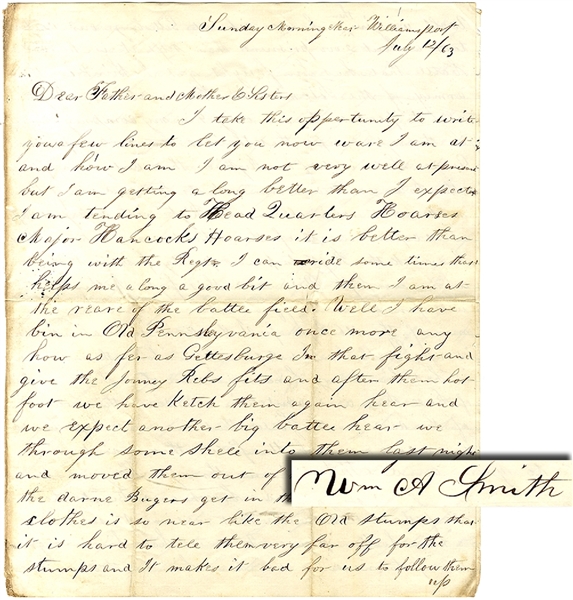 Sunday Morning Near Williamsport
July 12/63
Dear Father and Mother & Sisters
I take this opportunity to write
you a few lines to let you now ware I am at
and how I am I am not very well at present
but I am getting a long better than I expected
I am tending to Head Quarters Hoarses
Major Hancocks Hoarses it is better than
being with the Regt. I can ride some times that
helps me along a good bit and then I am at
the reare of the battle field. Well I have
bin in Old Pennsylvania once more any
how as fer as Gettesburge In that fight and
give the Jonney Rebs fits and after them hot
foot we have Ketch them again hear and
we expect another big battle hear we
through some shell into them last night
and moved them out of
the darne Bugers get in th
clothes is so near like the Old stumps that
it is hard to tele them very far off for the
stumps and It makes it bad for us to follow them
up
Wm A Smith